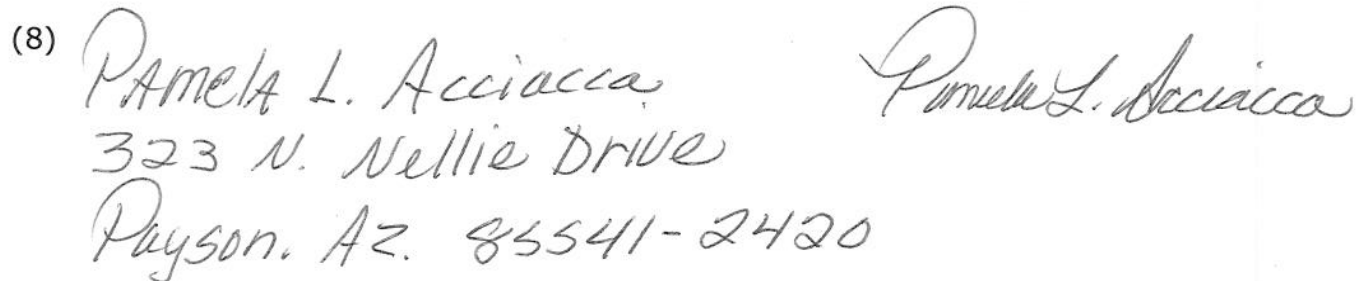 (8) PAmelA L. Acciacca Pamela L. Acciacca
323 N. Nellie Drive
Payson. AZ. 85541-2420